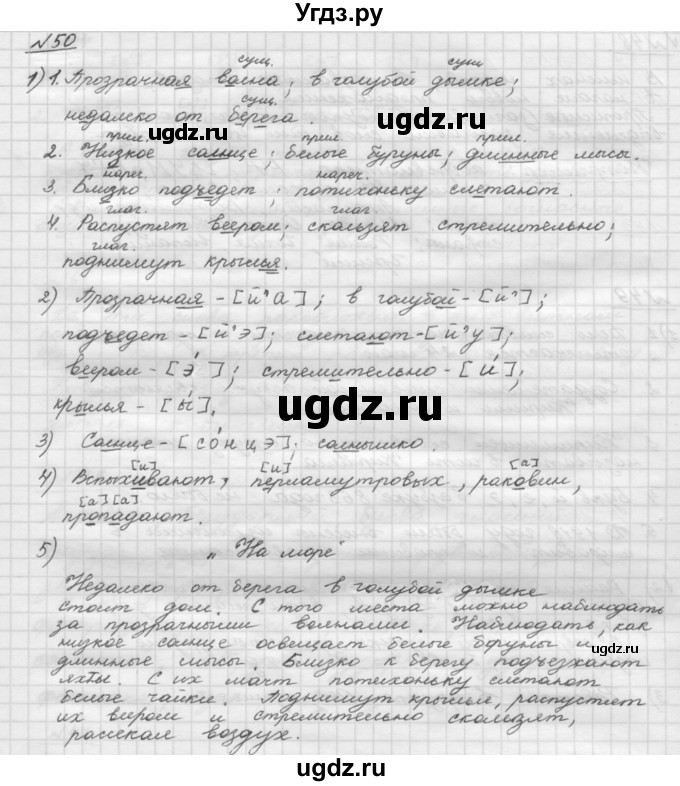 Угдз.ру
№50
сущ. сущ
1) 1. Прозрачная волна; в голубой дымке;
сущ.
недалеко от берега.
прил. прил. прил.
2. Низкое солнце; белые буруны; длинные мысы.
нареч. нареч.
3. Близко подъедет; потихоньку слетают.
глаг. глаг.
4. Распустят веером; скользят стремительно;
глаг.
поднимут крылья.
2) Прозрачная - [й'а]; в голубой - [й'];
подъедет - [й'э]; слетают - [й'у];
веером - [э́]; стремительно - [и́];
крылья - [ы́].
3) Солнце - [со́нцэ]; солнышко.
[и] [и] [а]
4) Вспыхивают, перламутровых, раковин,
[а] [а]
пропадают.
5) "На море"
Недалеко от берега в голубой дымке
стоит дом. С того места можно наблюдать
за прозрачными волнами. Наблюдать, как
низкое солнце освещает белые буруны и
длинные мысы. Близко к берегу подъезжают
яхты. С их мачт потихоньку слетают
белые чайки. Поднимут крылья, распустят
их веером и стремительно скользят,
рассекая воздух.
ugdz.ru
ugdz.ru
ugdz.ru
ugdz.ru
ugdz.ru